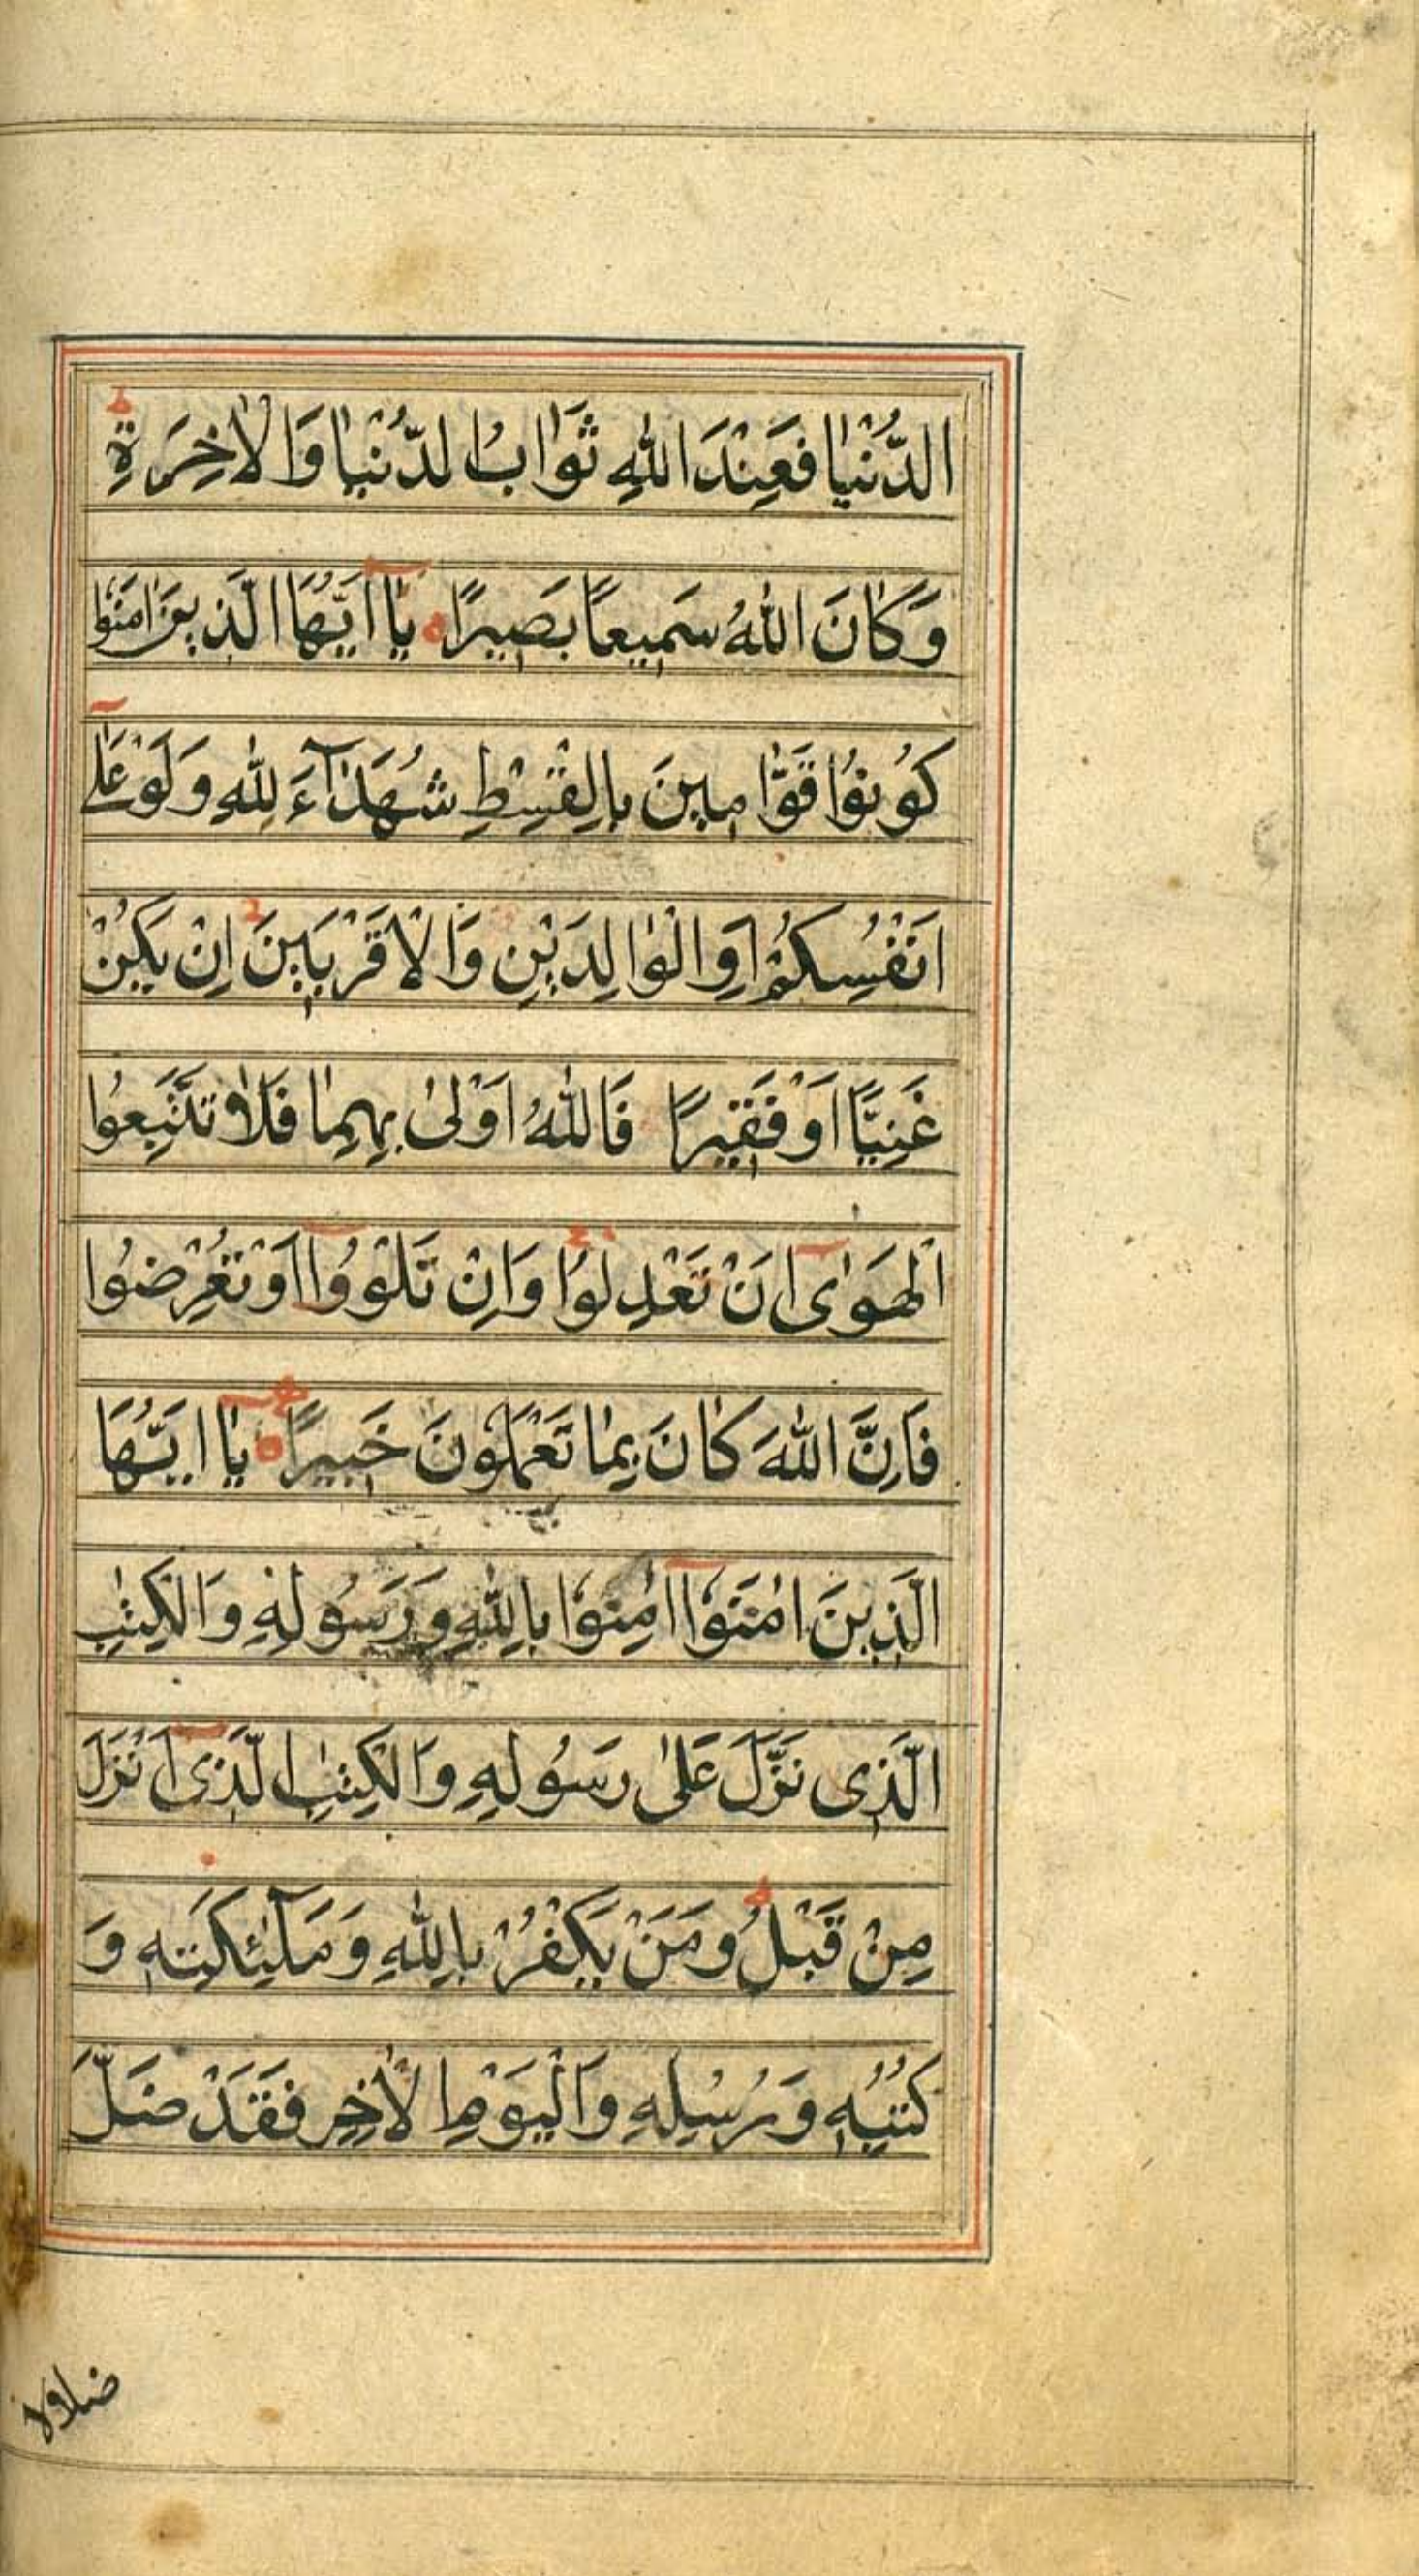 الدُّنْيٰا فَعِنْدَ اللّٰهِ ثَوَابُ الدُّنْيٰا وَالْاٰخِرَةِ ط
وَكٰانَ اللّٰهُ سَمِيعًا بَصِيرًا ه يٰٓا اَيُّهَا الَّذِينَ اٰمَنُوا
كُونُوا قَوّٰامِينَ بِالْقِسْطِ شُهَدٰٓاءَ لِلّٰهِ وَلَوْ عَلٰٓى
اَنْفُسِكُمْ اَوِ الْوٰالِدَيْنِ وَالْاَقْرَبِينَ اِنْ يَكُنْ
غَنِيًّا اَوْ فَقِيرًا فَاللّٰهُ اَوْلىٰ بِهِمٰا فَلٰا تَتَّبِعُوا
الْهَوٰٓى اَنْ تَعْدِلُوا وَاِنْ تَلْوُوٓا اَوْ تُعْرِضُوا
فَاِنَّ اللّٰهَ كٰانَ بِمٰا تَعْمَلُونَ خَبِيرًا ه يٰٓا اَيُّهَا
الَّذِينَ اٰمَنُوٓا اٰمِنُوا بِاللّٰهِ وَرَسُولِهِ وَالْكِتٰبِ
الَّذِى نَزَّلَ عَلىٰ رَسُولِهِ وَالْكِتٰبِ الَّذِىٓ اَنْزَلَ
مِنْ قَبْلُ ط وَمَنْ يَكْفُرْ بِاللّٰهِ وَمَلٰٓئِكَتِهِ وَ
كُتُبِهِ وَرُسُلِهِ وَالْيَوْمِ الْاٰخِرِ فَقَدْ ضَلَّ
ضلالا